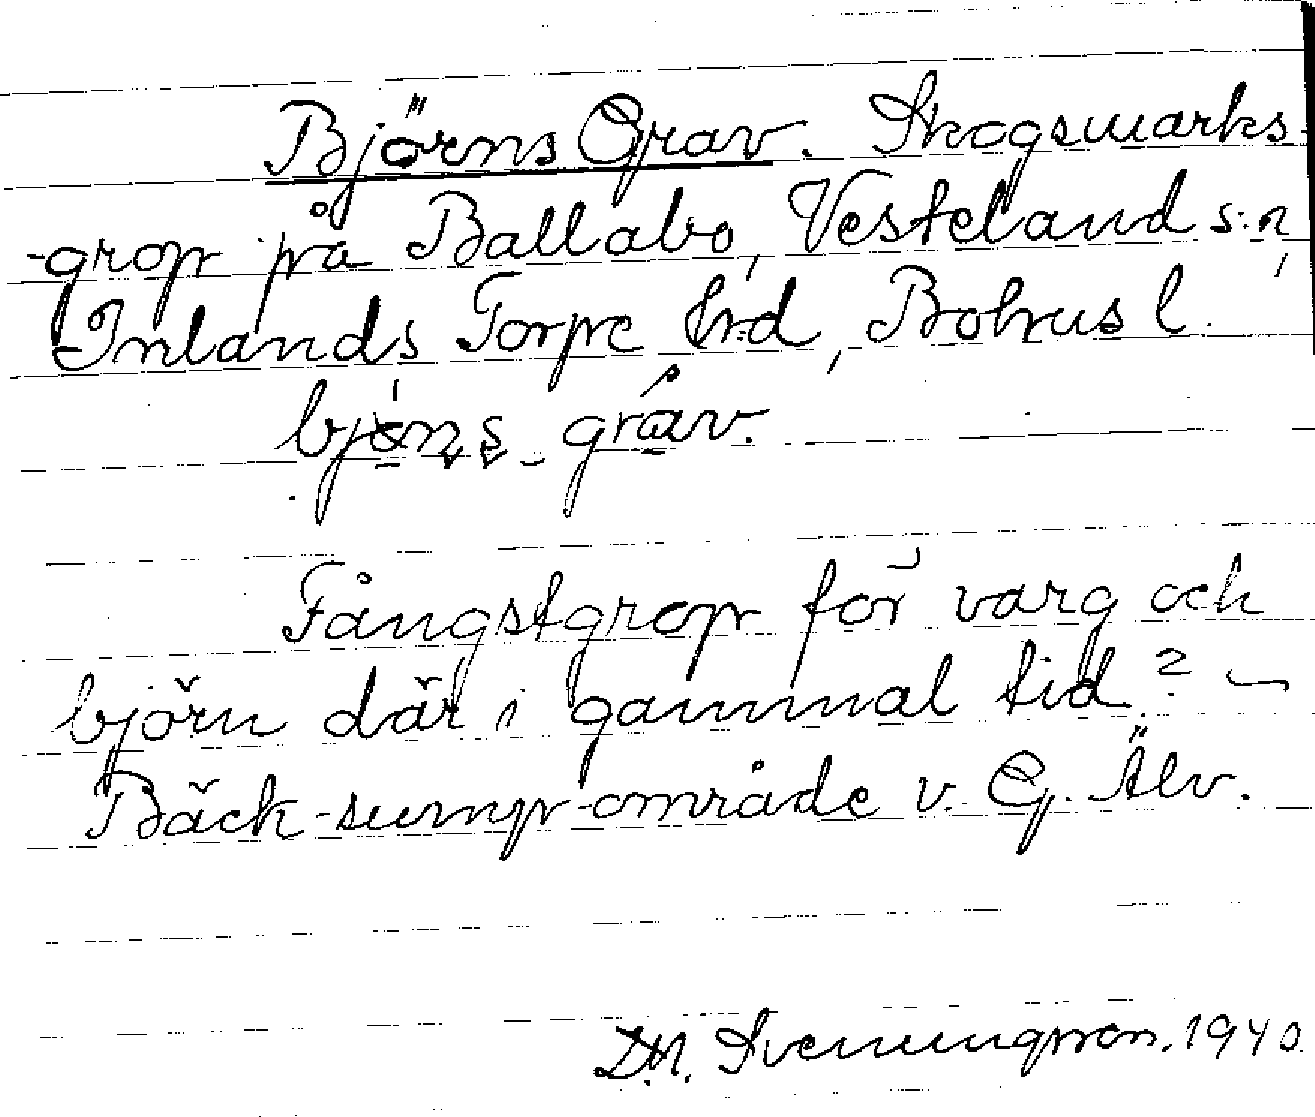 Björns Grav. Skogsmarks-
-grop på Ballabo, Vesterland s:n,
Inlands Torpe hrd, Bohus l.
bjöns gràv.
Fångstgrop för varg och
björn där i gammal tid? –
Bäck-sump-område v. G. Älv.
D.N. Svenningsson. 1940.